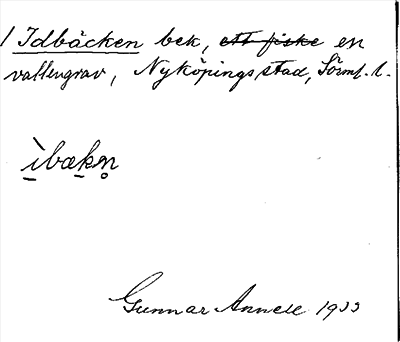 1 Idbäcken bek, ett fiske en
vallengrav, Nyköpings stad, Sörml. l.
ìbækn̥
Gunnar Annell 1933